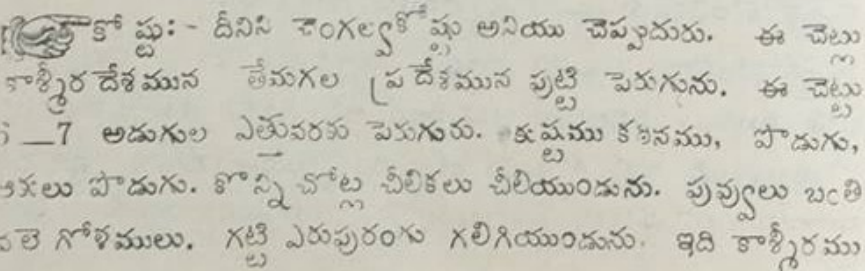 కోష్టు:- దీనిని చెంగల్వకోష్టు అనియు చెప్పుదురు. ఈ చెట్లు
కాశ్మీర దేశమున తేమగల ప్రదేశమున పుట్టి పెరుగును. ఈ చెట్లు
_7 అడుగుల ఎత్తువరకు పెరుగురు. కాష్టము కఠినము, పొడుగు,
ఆకులు పొడుగు. కొన్ని చోట్ల చీలికలు చీలియుండును. పువ్వులు బంతి
వలె గోళములు. గట్టి ఎరుపురంగు గలిగియుండును. ఇది కాశ్మీరము